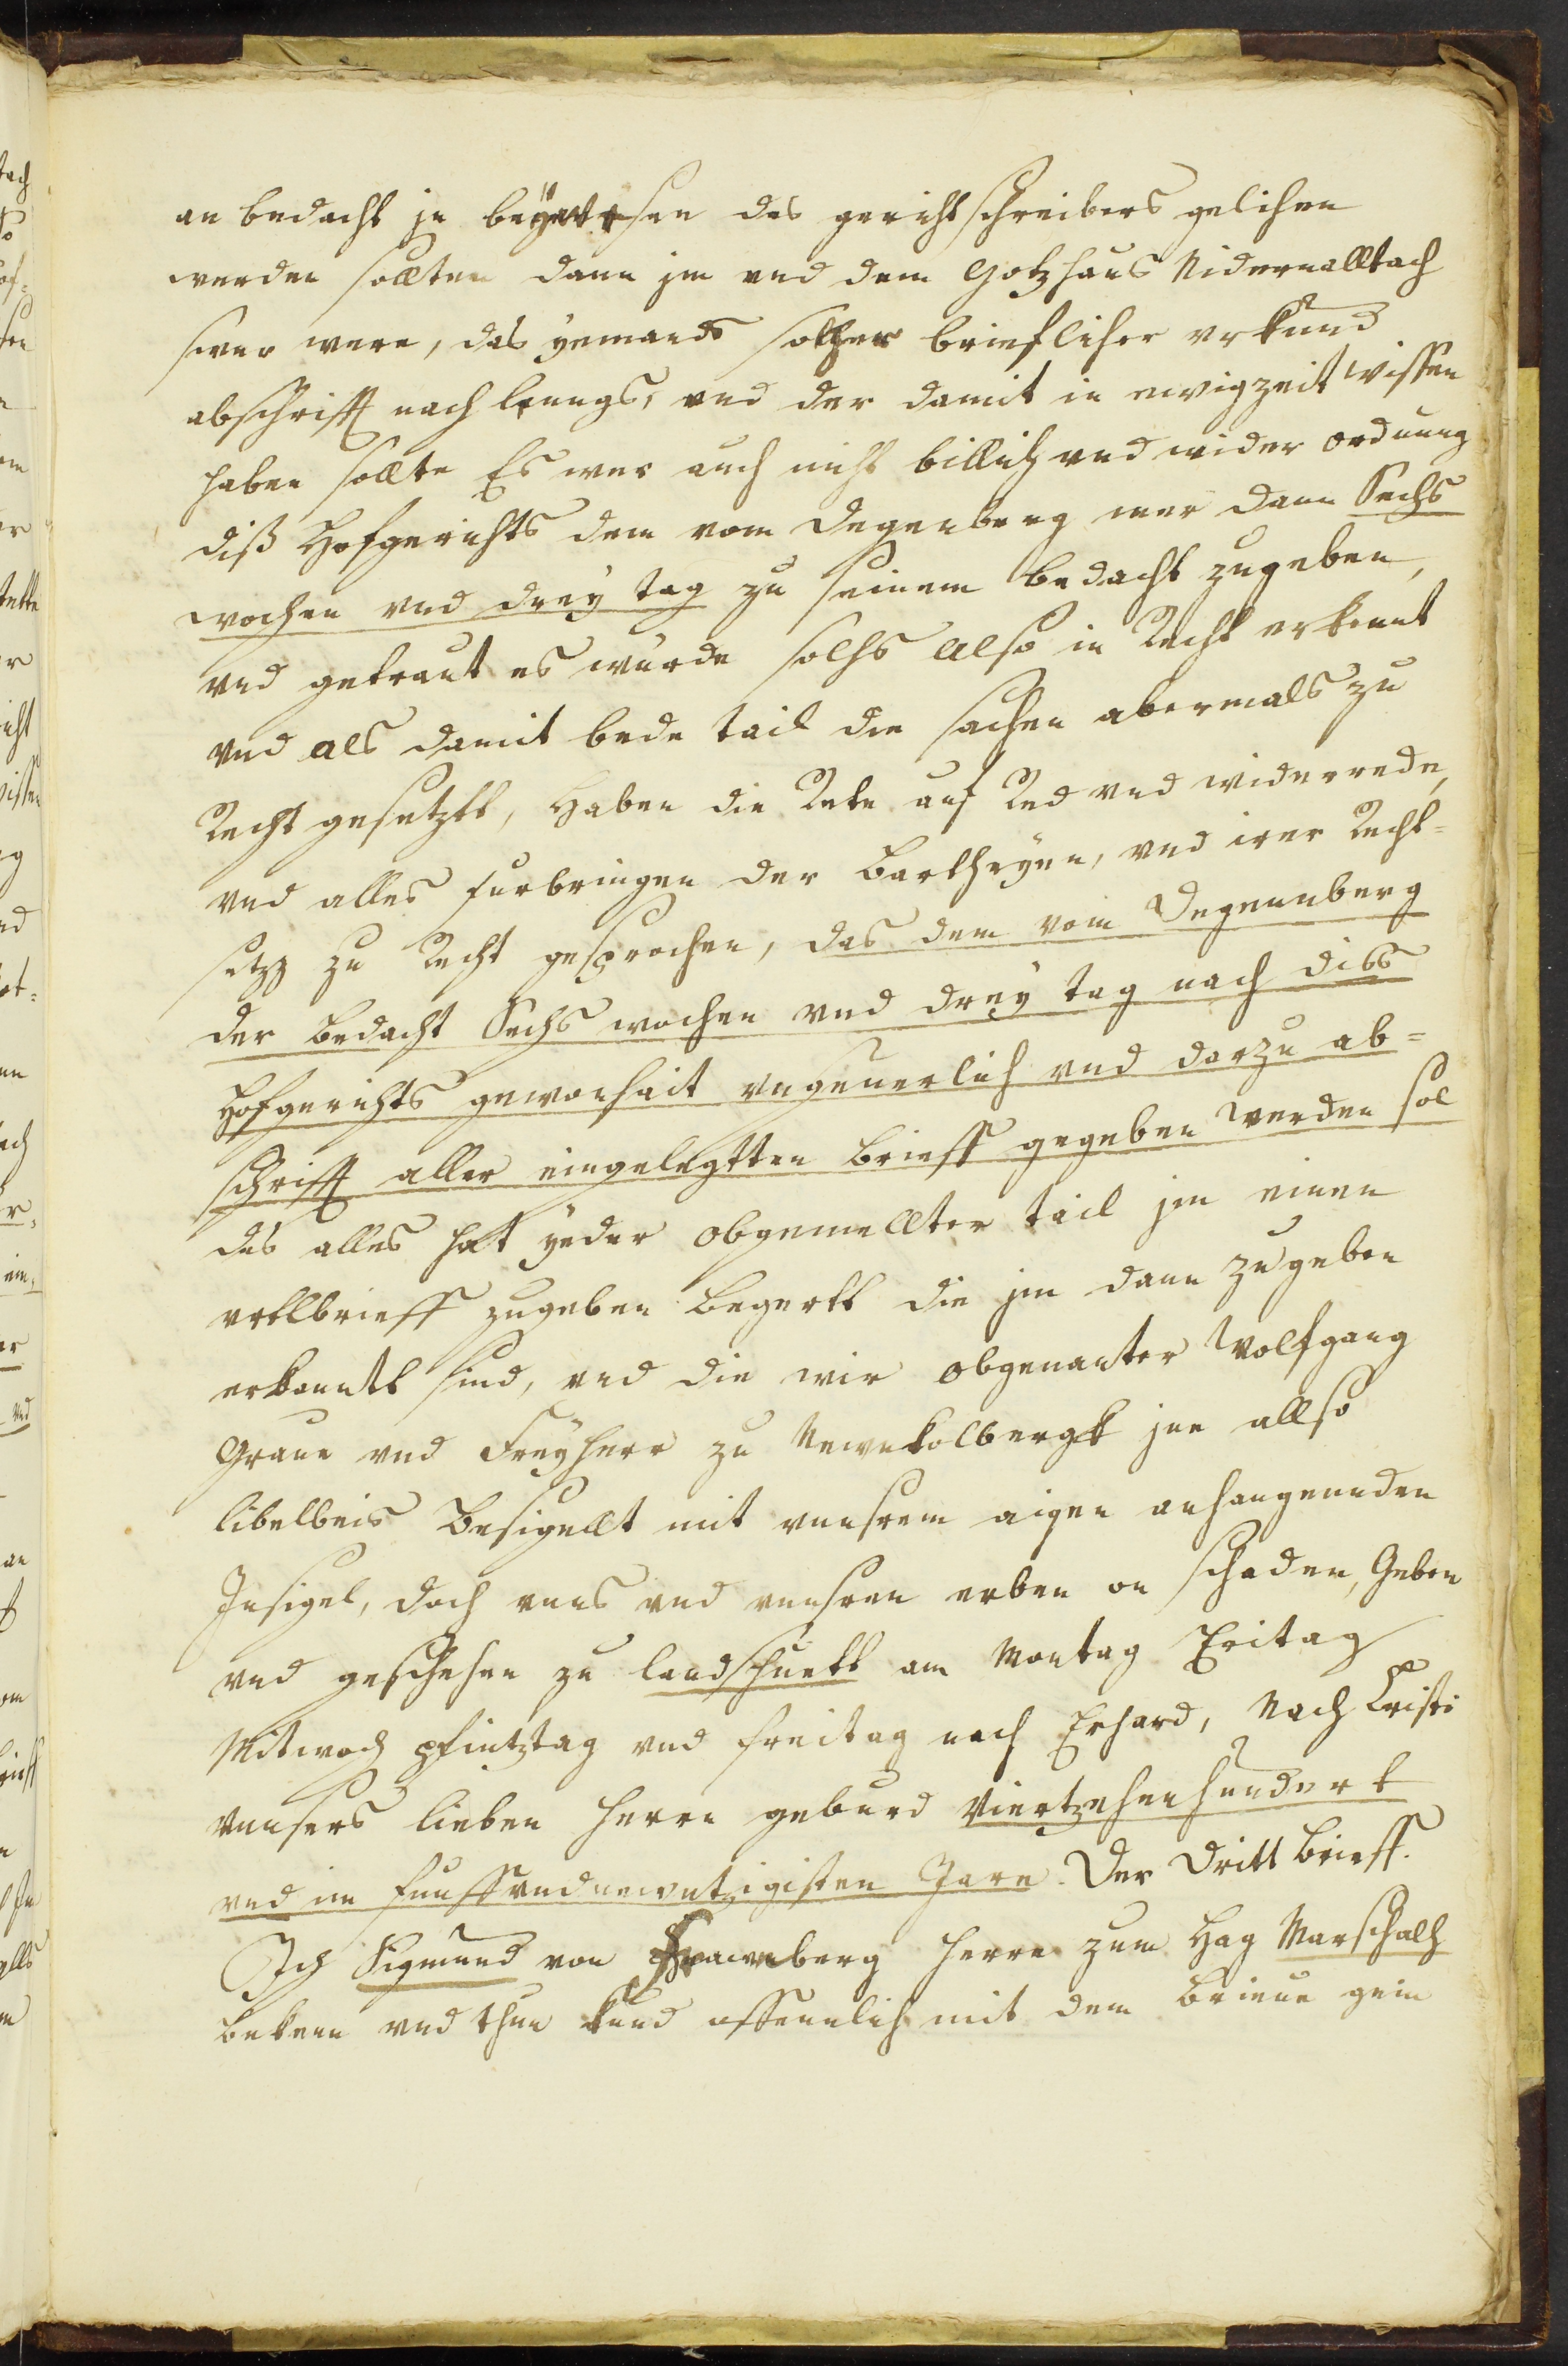 an bedacht in beywesen des gerichtschreibers gelihen
werden sollten dann jm vnd dem Gotzhaus Nidernalltach
swer were, das yemands solher brieflicher vrkund
abschrifft nach lenngs, vnd der damit in ewigzeit wissen
haben sollte Es wer auch nicht billich vnd wider ordnung
diß Hofgerichts dem vom Degenberg mer dann Sechs
wochen vnd drey tag zu seinem bedacht zugeben,
vnd getraut es wurde solhs also in Recht erkennt
vnd als damit bede tail die sachen abermals zu
Recht gesetztt, Haben die Rete auf Red vnd widerrede,
vnd alles furbringen der Partheyen, vnd irer Recht=
setzz zu Recht gesprochen, das dem vom Degennberg
der bedacht Sechs wochen vnd drey tag nach diss
Hofgerichts gewonhait vngeuerlich vnd darzu ab=
schrifft aller eingelegtten brieff gegeben werden sol
des alles hat yeder obgemellter tail jm einen
vrtlbrieff zugeben begertt die jm dann zugeben
erkanntt sind, vnd die wir obgenanter Wolfgang
Graue vnd Freyherr zu Newnkolbergk jne allso
libelbeis besigellt mit vnnsrem aigen anhangennden
Insigel, doch vnns vnd vnnsren erben on schaden, Geben
vnd geschehen zu landshuett am Montag Eritag
Mitwoch pfintztag vnd freitag nach Erhard, Nach Cristi
vnnsers lieben herrn geburd viertzehenhundert
vnd im funffvndnewntzigisten Jare. Der Dritt brieff.
Ich Sigmund von Frawnberg Herre zum Hag Marschalh
bekenn vnd thun kund offennlich mit dem brieue gein